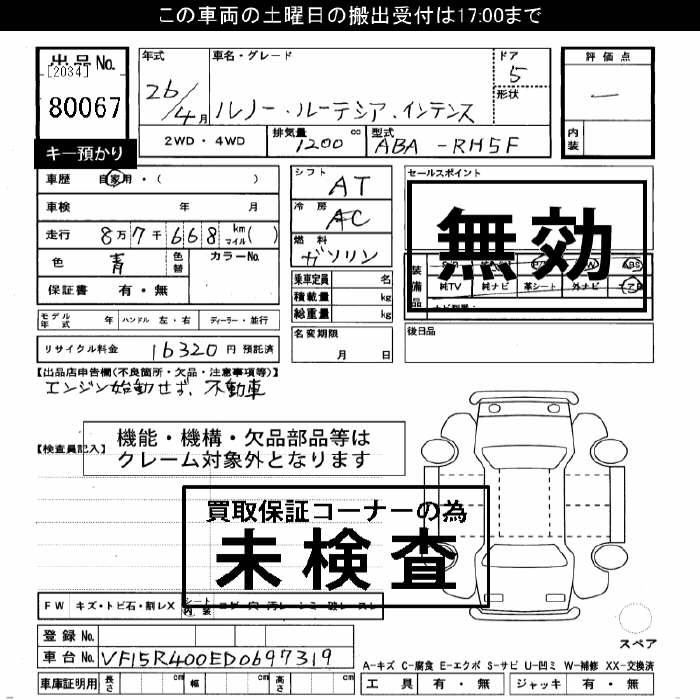 この車両の土曜日の搬出受付は17:00まで
出品No.
[2034]
80067
キー預かり
年式
26/4月
車名・グレード
ルノー・ルーテシア・インテンス
ドア
5
形状
評価点
―
内装
2WD・4WD
排気量
1200 cc
型式
ABA-RH5F
車歴 自家用・( )
車検 年 月
走行 8万7千668 km マイル( )
色 青 色替 カラーNo.
保証書 有・無
シフト AT
冷房 AC
燃料 ガソリン
乗車定員 名
積載量 kg
総重量 kg
セールスポイント
無効
装備品
純TV 純ナビ 革シート 外ナビ
モデル年式 年 ハンドル 左・右 ディーラー・並行
名変期限
月 日
後日品
リサイクル料金 16320円 預託済
【出品店申告欄(不良箇所・欠品・注意事項等)】
エンジン始動せず、不動車
【検査員記入】
機能・機構・欠品部品等は
クレーム対象外となります
買取保証コーナーの為
未検査
FW キズ・トビ石・割レX シート内装
登録No.
車台No. VF15R400ED0697319
車庫証明用 長さ cm 幅 cm 高さ cm
スペア
A-キズ C-腐食 E-エクボ S-サビ U-凹ミ W-補修 XX-交換済
工具 有・無 ジャッキ 有・無